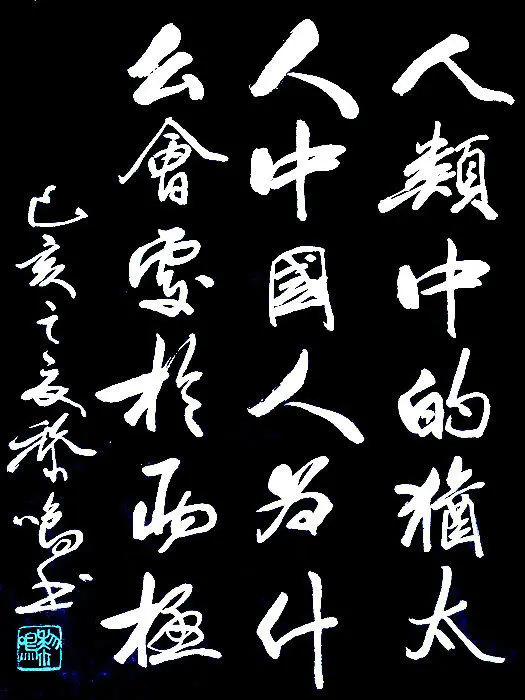 人類中的猶太
人中國人為什
么會處於兩極
己亥之夏黎鳴书
黎鳴